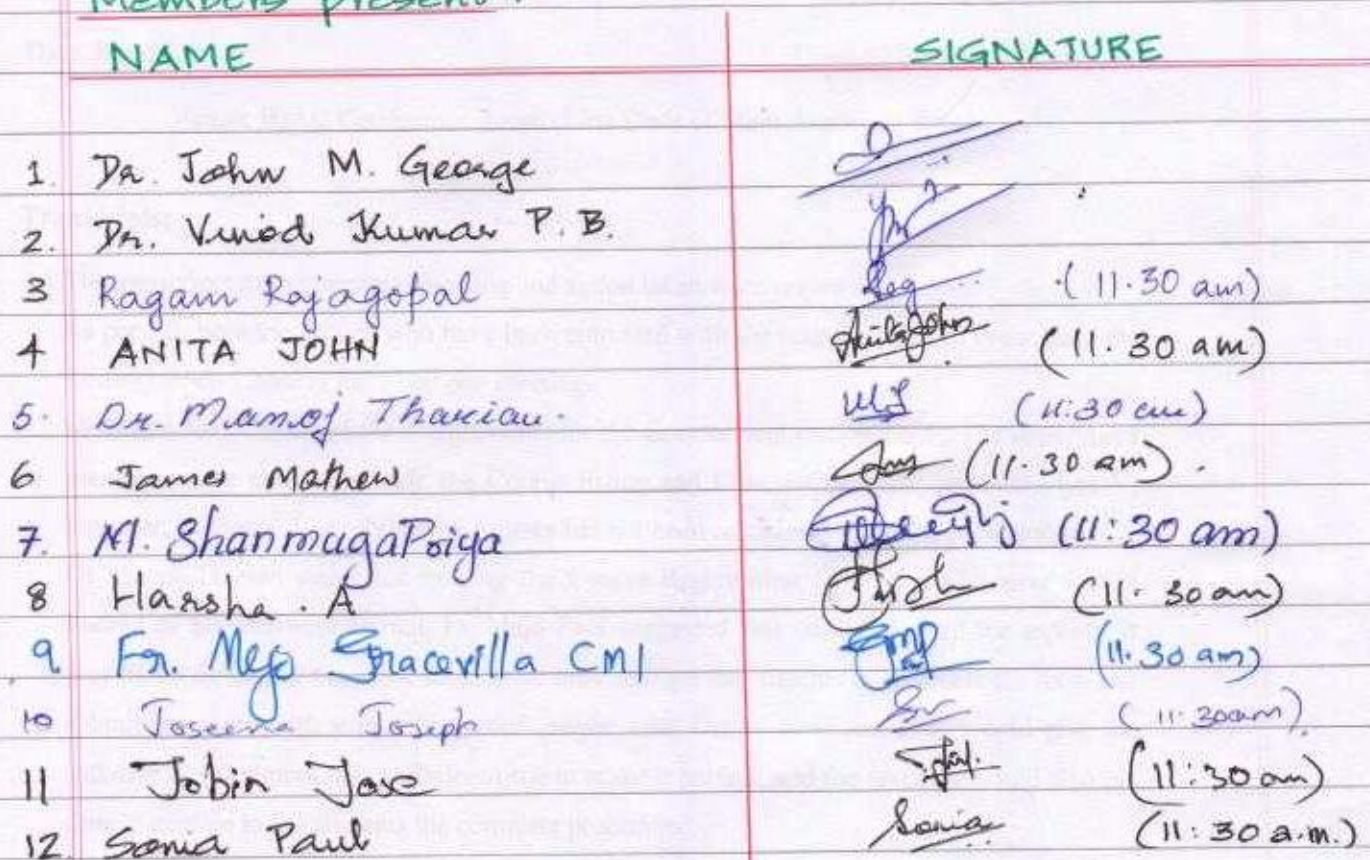 Members present:
NAME SIGNATURE
1. Dr. John M. George
2. Dr. Vinod Kumar P.B.
3 Ragam Rajagopal Rag (11.30 am)
4 ANITA JOHN Anita John (11.30 am)
5. Dr. Manoj Thariau. (11:30 am)
6 James Mathew (11.30 am).
7. M. ShanmugaPriya (11:30 am)
8 Harsha . A (11.30am)
9 Fr. Mejo Gracevilla CMI (11.30 am)
10 Joseena Joseph (11.30am)
11 Jobin Jose (11:30 am)
12. Sonia Paul Sonia (11:30 a.m.)